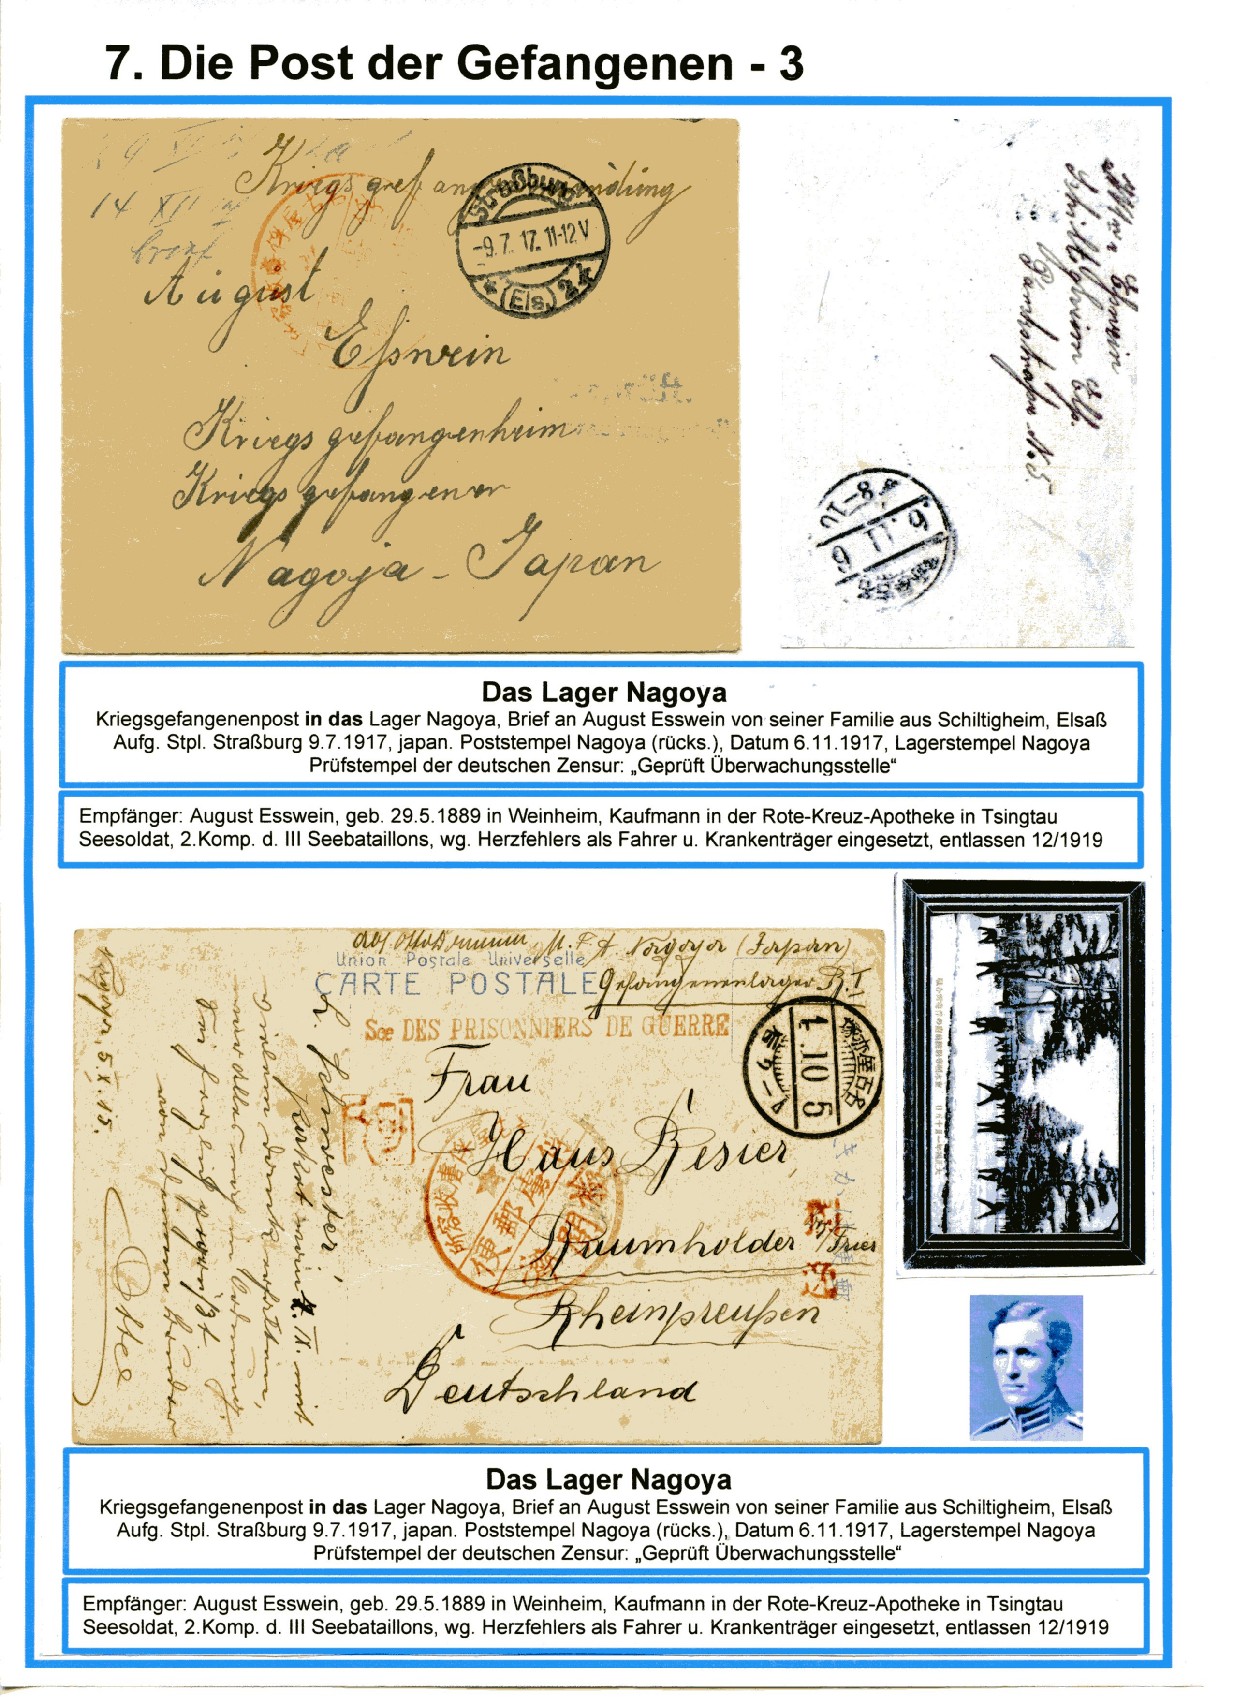 7. Die Post der Gefangenen - 3
Kriegsgefangensendung
14 XII
Straßburg
-9.7.17.11-12V
* (Els.) 2 k
August
Esswein
Kriegsgefangenheim
Kriegsgefangener
Nagoja - Japan
Schiltigheim Els.
Parkstraße No 5
6.11.6
Das Lager Nagoya
Kriegsgefangenenpost in das Lager Nagoya, Brief an August Esswein von seiner Familie aus Schiltigheim, Elsaß
Aufg. Stpl. Straßburg 9.7.1917, japan. Poststempel Nagoya (rücks.), Datum 6.11.1917, Lagerstempel Nagoya
Prüfstempel der deutschen Zensur: „Geprüft Überwachungsstelle“
Empfänger: August Esswein, geb. 29.5.1889 in Weinheim, Kaufmann in der Rote-Kreuz-Apotheke in Tsingtau
Seesoldat, 2.Komp. d. III Seebataillons, wg. Herzfehlers als Fahrer u. Krankenträger eingesetzt, entlassen 12/1919
Nagoya (Japan)
Union Postale Universelle
CARTE POSTALE
Gefangenenlager
Sce DES PRISONNIERS DE GUERRE
4.10.5
Frau
Haus Resier,
Baumholder Trier
Rheinpreußen
Deutschland
郵便
Nagoya, 5.X.15.
L. Schwester,
Karte vom II. mit
vielem Dank erhalten,
Sei herzlich gegrüßt
von deinem Bruder
Otto
Das Lager Nagoya
Kriegsgefangenenpost in das Lager Nagoya, Brief an August Esswein von seiner Familie aus Schiltigheim, Elsaß
Aufg. Stpl. Straßburg 9.7.1917, japan. Poststempel Nagoya (rücks.), Datum 6.11.1917, Lagerstempel Nagoya
Prüfstempel der deutschen Zensur: „Geprüft Überwachungsstelle“
Empfänger: August Esswein, geb. 29.5.1889 in Weinheim, Kaufmann in der Rote-Kreuz-Apotheke in Tsingtau
Seesoldat, 2.Komp. d. III Seebataillons, wg. Herzfehlers als Fahrer u. Krankenträger eingesetzt, entlassen 12/1919